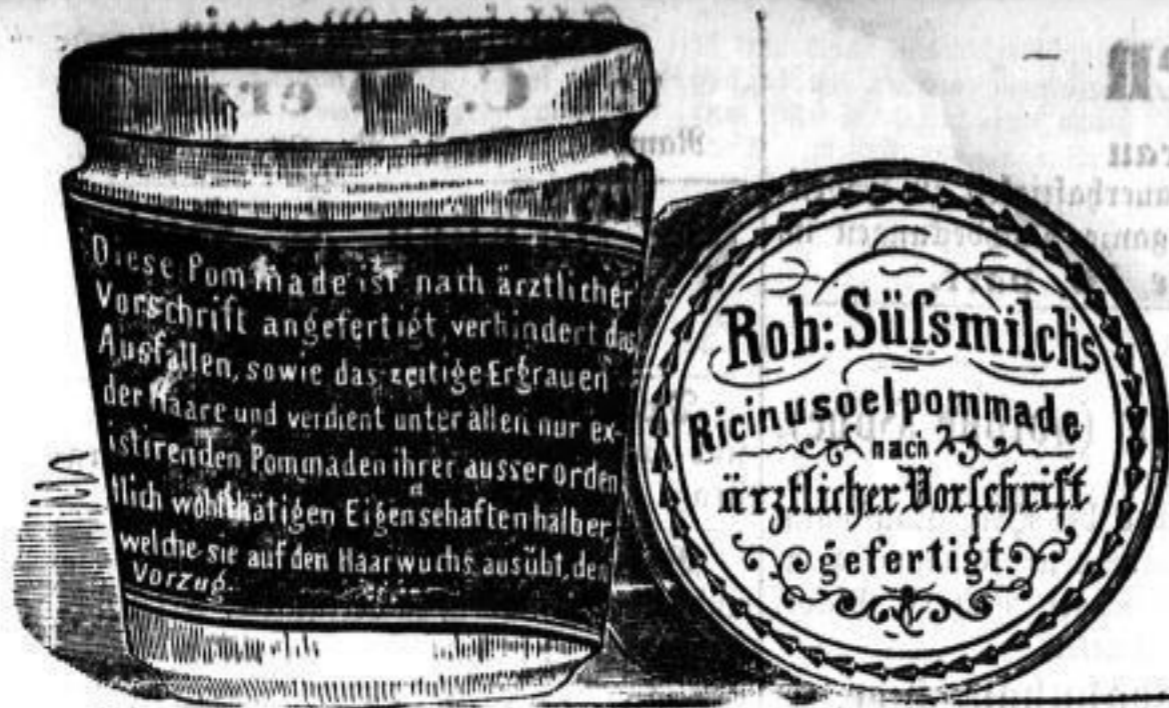 Diese Pommade ist nach ärztlicher
Vorschrift angefertigt, verhindert das
Ausfallen, sowie das zeitige Ergrauen
der Haare und verdient unter allen nur ex-
istirenden Pommaden ihrer ausserorden
tlich wohlthätigen Eigenschaften halber
welche sie auf den Haarwuchs ausübt, den
Vorzug.
Rob: Süſsmilchs
Ricinusoelpommade
nach
ärztlicher Vorſchrift
gefertigt.
en
rau